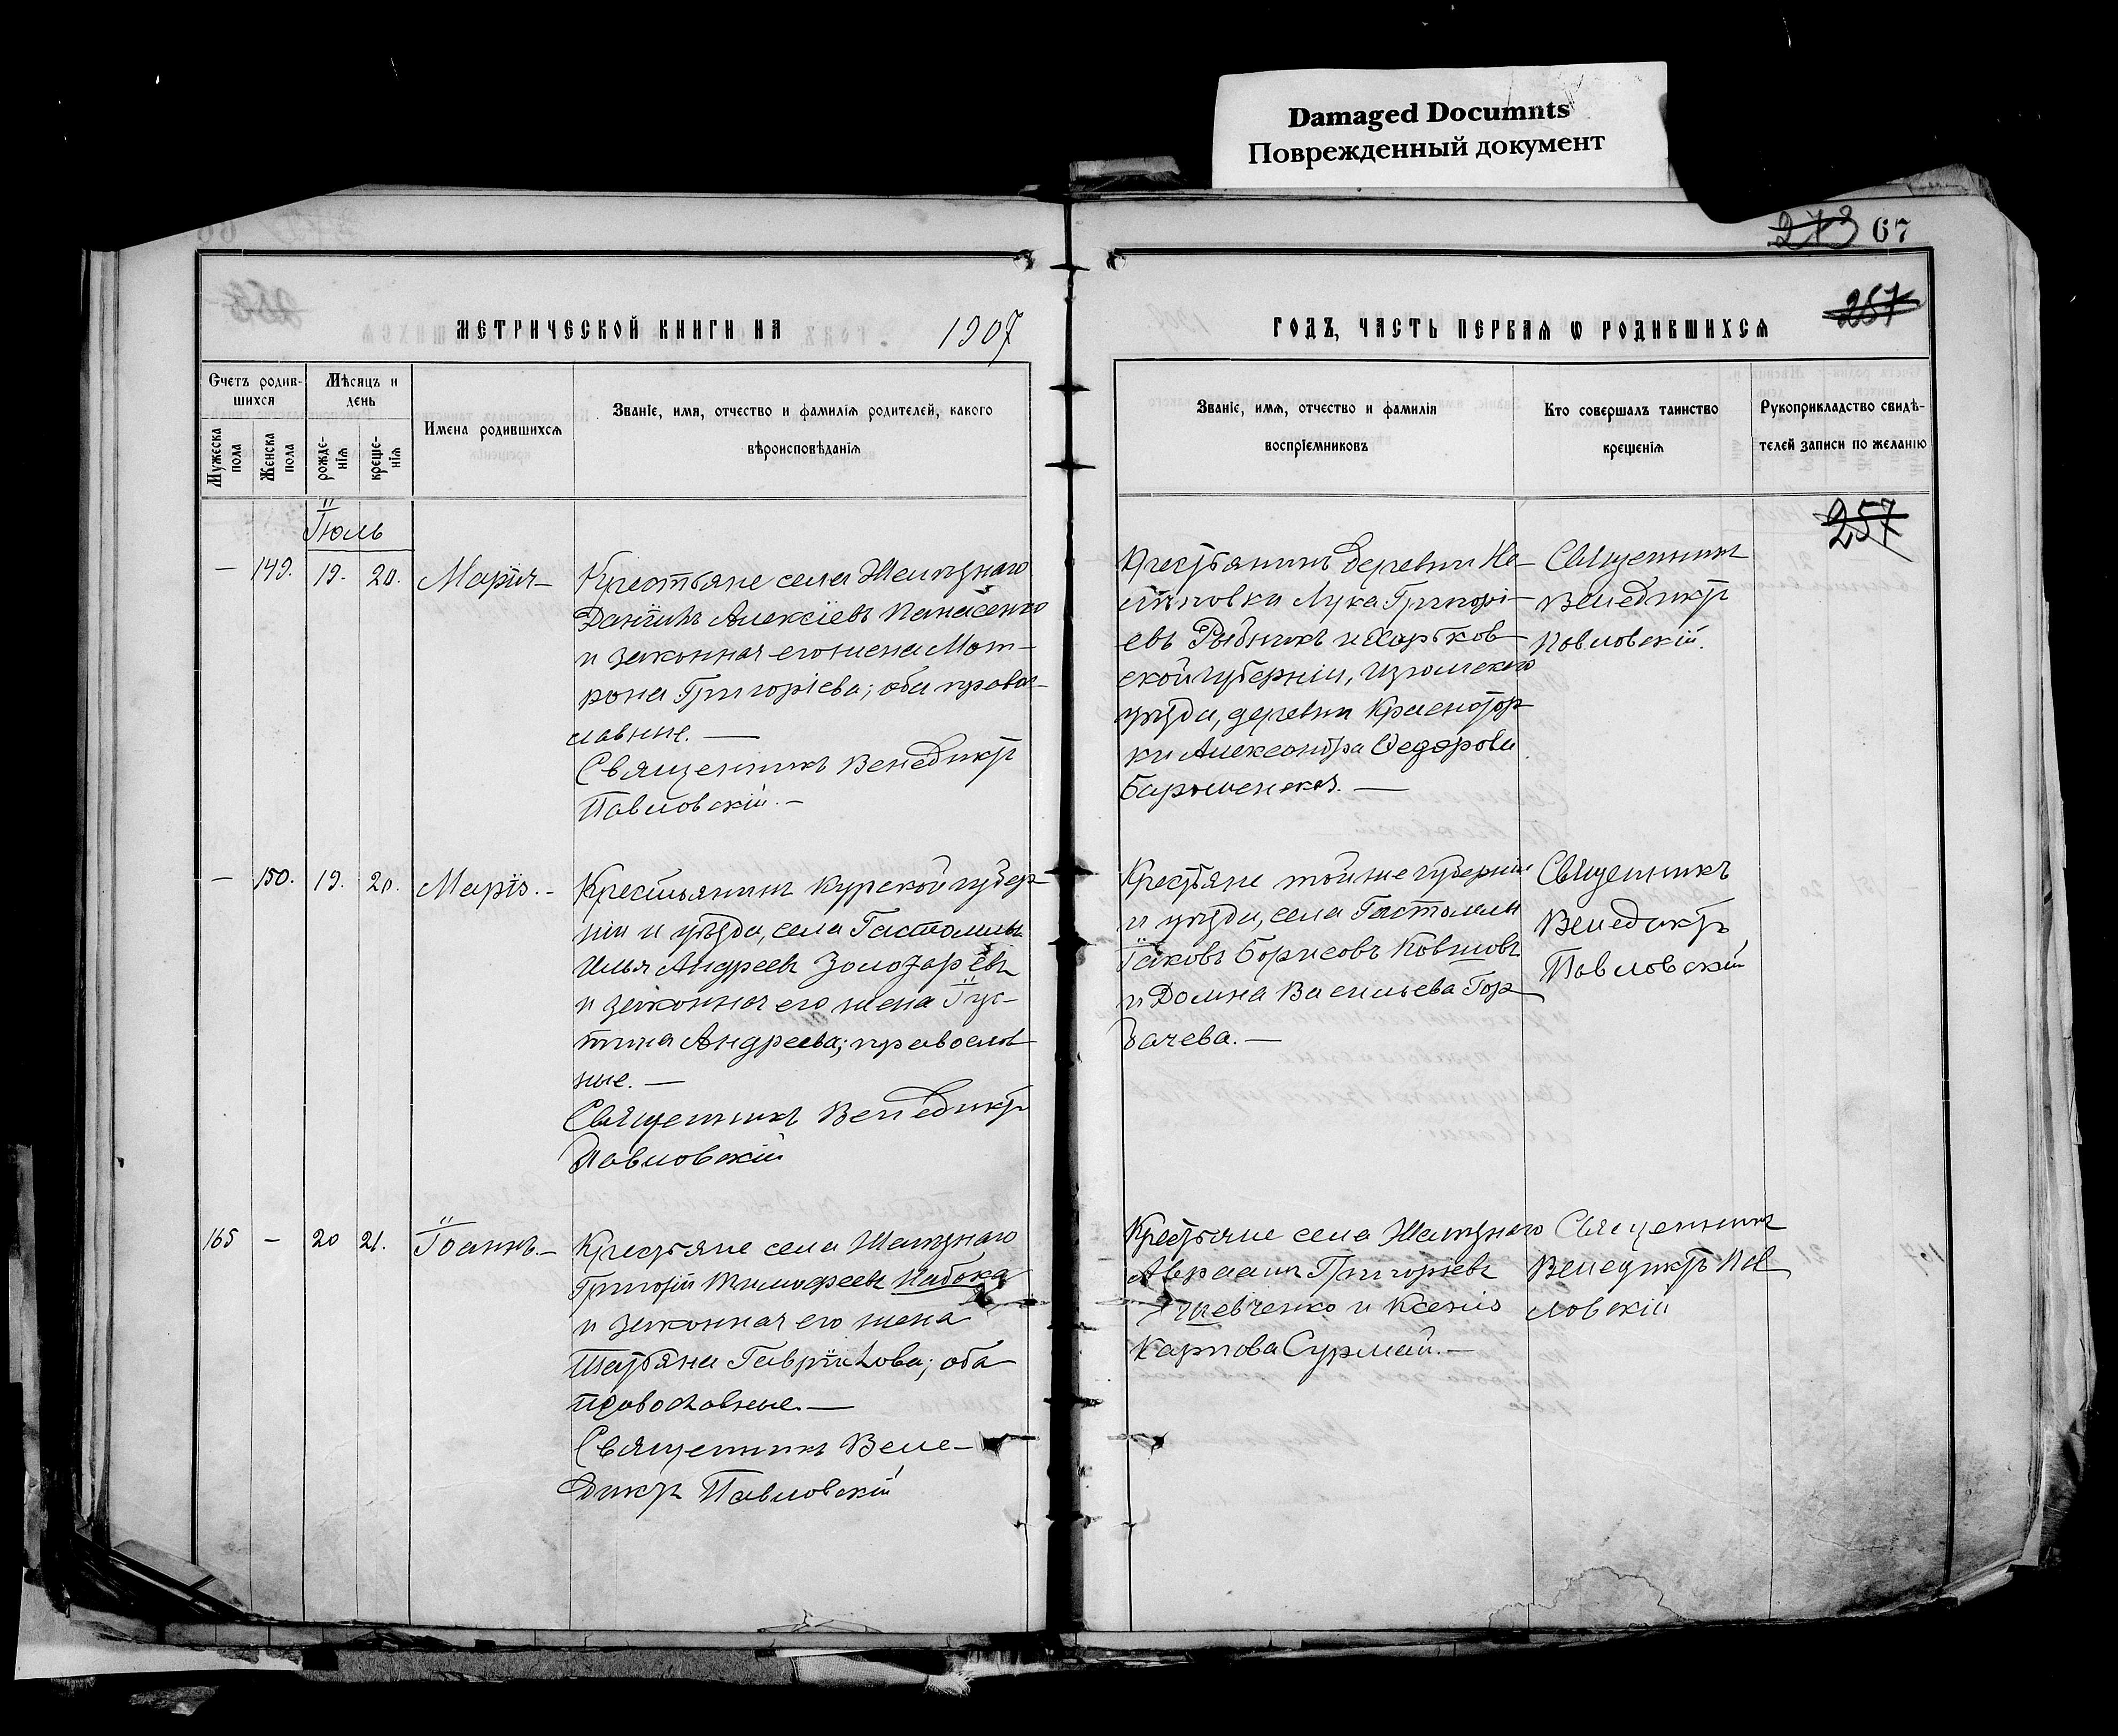 Damaged Documnts
Поврежденный документ
273 67
257
МЕТРИЧЕСКОЙ КНИГИ НА 1907
ГОДЪ, ЧАСТЬ ПЕРВАЯ Ѡ РОДИВШИХСЯ
Счетъ родив-
шихся
Мужеска пола
Женска пола
Мѣсяцъ и
день
рожде-
нія
креще-
нія
Имена родившихся
Званіе, имя, отчество и фамилія родителей, какого
вѣроисповѣданія
Званіе, имя, отчество и фамилія
воспріемниковъ
Кто совершалъ таинство
крещенія
Рукоприкладство свидѣ-
телей записи по желанію
257
Іюль
— 149. 19. 20. Марія —
Крестьяне села Желѣзнаго
Даніилъ Алексіевъ Панасенко
и законная его жена Мат-
рона Григоріева; оба правос-
лавные. —
Священникъ Венедиктъ
Павловскій. —
Крестьянинъ деревни Не-
лѣповки Лука Григорі-
евъ Рыбникъ и Харьков-
ской губерніи, Изюмскаго
уѣзда, деревни Красното­р-
ки Александра Ѳедорова
Священникъ
Венедиктъ
Павловскій.
— 150. 19. 20. Марія. —
Крестьянинъ Курской губер-
ніи и уѣзда, села Гастомли
Илья Андреевъ Золотаревъ
и законная его жена Іус-
тина Андреева; православ-
ные. —
Священникъ Венедиктъ
Павловскій
Крестьяне той же губерніи
и уѣзда, села Гастомли
Іаковъ Борисовъ Ковшовъ
и Домна Васильева Гор-
бачева. —
Священникъ
Венедиктъ
Павловскій
165 — 20 21. Іоаннъ. —
Крестьяне села Желѣзнаго
Григорій Тимофеевъ Набока
и законная его жена
Татьяна Гавріилова; оба
православные. —
Священникъ Вене-
диктъ Павловскій
Крестьяне села Желѣзнаго
Авраамъ Григоріевъ
Шевченко и Ксенія
Карпова Сурмай. —
Священникъ
Венедиктъ Пав
ловскій